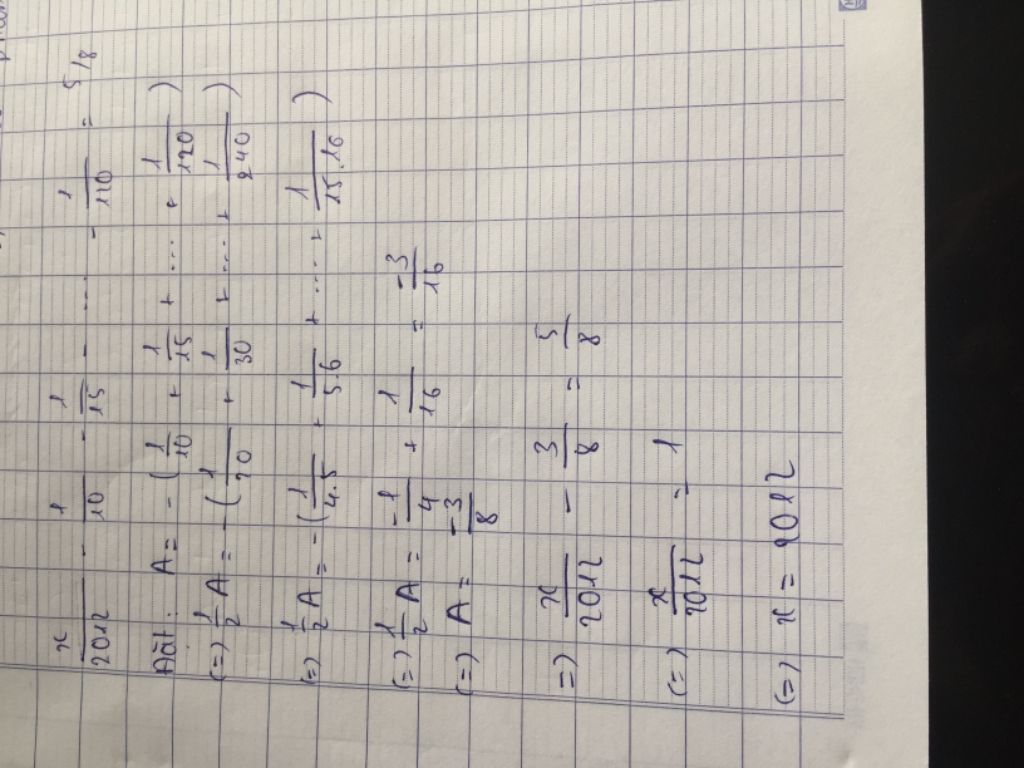 x/2012 - 1/10 - 1/15 - .... - 1/110 = 5/8
Đặt: A = - (1/10 + 1/15 + ... + 1/120)
(=) 1/2 A = - (1/20 + 1/30 + ... + 1/240)
(=) 1/2 A = - (1/4.5 + 1/5.6 + .... + 1/15.16)
(=) 1/2 A = -1/4 + 1/16 = -3/16
(=) A = -3/8
=) x/2012 - 3/8 = 5/8
(=) x/2012 = 1
(=) x = 2012